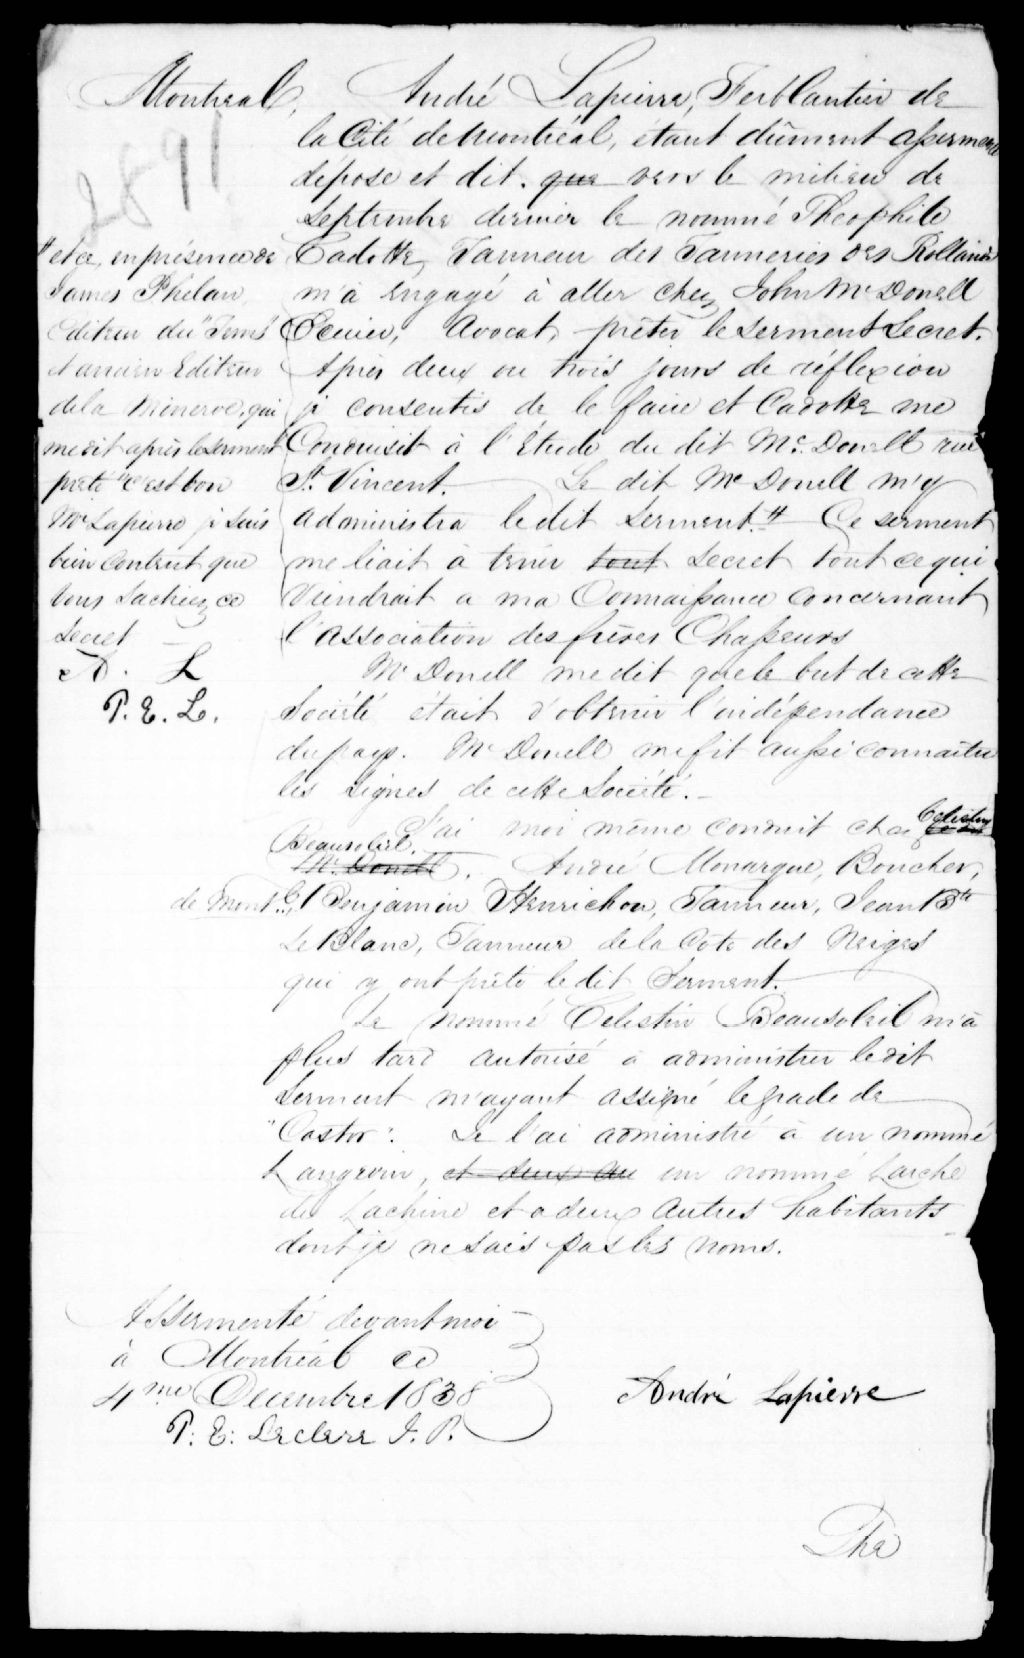 Montreal,
2891
André Lapierre, Ferblantier de
la Cité de Montréal, étant dûment assermenté
dépose et dit. que vers le milieu de
Septembre dernier le nommé Theophile
Cadotte, Tanneur des Tanneries des Rollands
m'a engagé à aller chez John McDonell
Ecuier, Avocat, prêter le serment Secret.
Après deux ou trois jours de réflexion
je consentis de le faire et Cadotte me
Conduisit à l'Etude du dit Mc. Donell rue
St. Vincent. Le dit Mc Donell m'y
administra le dit Serment. # Ce serment
me liait à tenir tout Secret tout ce qui
Viendrait a ma Connaissance Concernant
l'Association des frères Chasseurs
# et ce, en présence de
James Phelan,
Editeur du "Tems"
et ancien Editeur
de la Minerve, qui
me dit après le serment
prêté "C'est bon
Mr Lapierre je suis
bien Content que
vous Sachiez, ce
Secret —
A. L
P. E. L.
Mc Donell me dit que le but de cette
Société était d'obtenir l'indépendance
du pays. Mc Donell me fit aussi connaître
les Signes de cette Société. —
J'ai moi même conduit chez Celestin
Beausoleil.
Mc. Donell. André Monarque, Boucher,
de Montl., Benjamin Henrichon, Tanneur, Jean Bte
LeBlanc, Tanneur de la Cote des Neiges
qui y ont prêté le dit Serment.
Le nommé Celestin Beausoleil m'a
plus tard autorisé à administrer le dit
Serment m'ayant assigné le grade de
"Castor". Je l'ai administré à un nommé
Langevin, et deux au un nommé Larche
de Lachine et a deux autres habitants
dont je ne sais pas les noms.
Assermenté devant moi
à Montréal ce
4me Decembre 1838
P. E. Leclere J. P.
André Lapierre
The